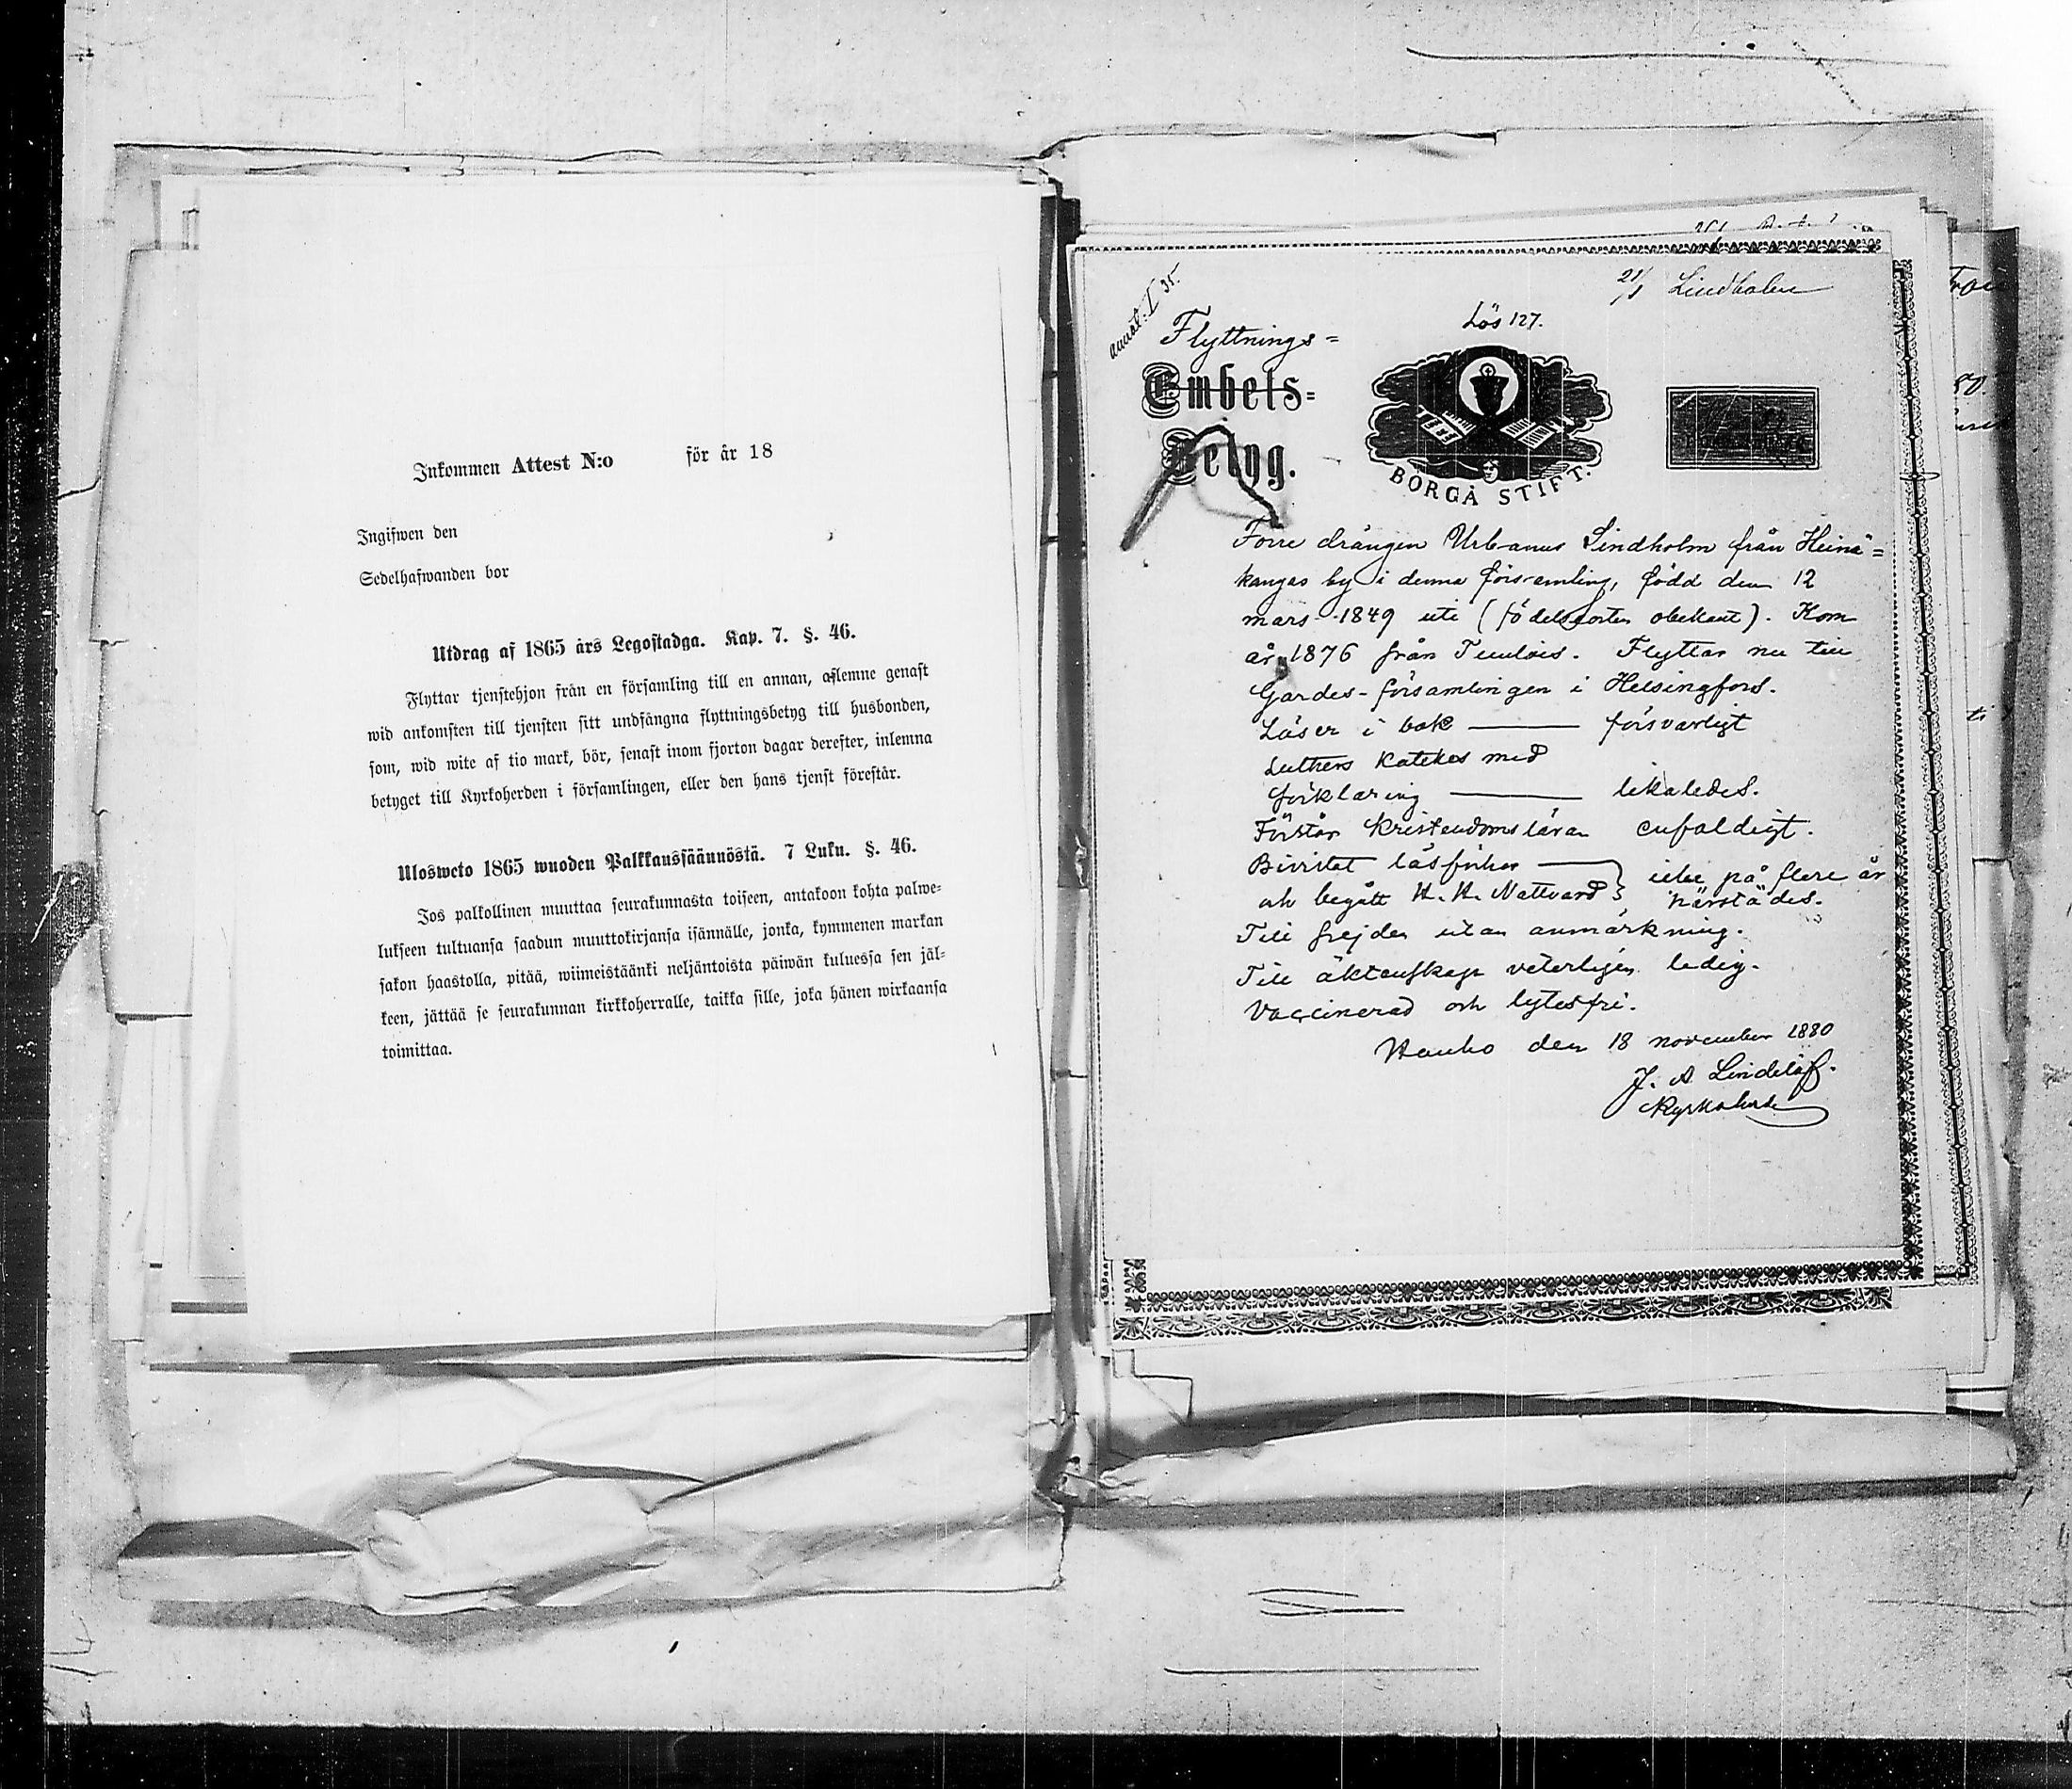 Inkommen Attest N:o för år 18
Ingifwen den
Sedelhafwanden bor
Utdrag af 1865 års Legostadga. Kap. 7. §. 46.
Flyttar tjenstehjon från en församling till en annan, aflemne genast
wid ankomsten till tjensten sitt undfångna flyttningsbetyg till husbonden,
som, wid wite af tio mark, bör, senast inom fjorton dagar derefter, inlemna
betyget till Kyrkoherden i församlingen, eller den hans tjenst förestår.
Ulosweto 1865 wuoden Palkkaussäännöstä. 7 Luku. §. 46.
Jos palkollinen muuttaa seurakunnasta toiseen, antakoon kohta palwe-
lukseen tultuansa saadun muuttokirjansa isännälle, jonka, kymmenen markan
sakon haastolla, pitää, wiimeistäänki neljäntoista päiwän kuluessa sen jäl-
keen, jättää se seurakunnan kirkkoherralle, taikka sille, joka hänen wirkaansa
toimittaa.
annot. I 35.
21/1 Lindholm
Lös 127.
Flyttnings=
Embets=
Betyg.
BORGÅ STIFT.
Förre drängen Urbanus Lindholm från Heinä=
kangas by i denna församling, född den 12
mars 1849 uti (födelseorten obekant). Kom
år 1876 från Tuulois. Flyttar nu till
Gardes-församlingen i Helsingfors.
Läser i bok ——— försvarligt
Luthers Katekes med
förklaring ——— likaledes.
Förstår Kristendomsläran enfaldigt.
Bivistat läsförhör ——— } icke på flere år
och begått H. H. Nattvard } härstädes.
Till frejden utan anmärkning.
Till äktenskap veterligen ledig.
Vaccinerad och lytesfri.
Hauho den 18 november 1880
J. A Lindelöf.
Kyrkoherde